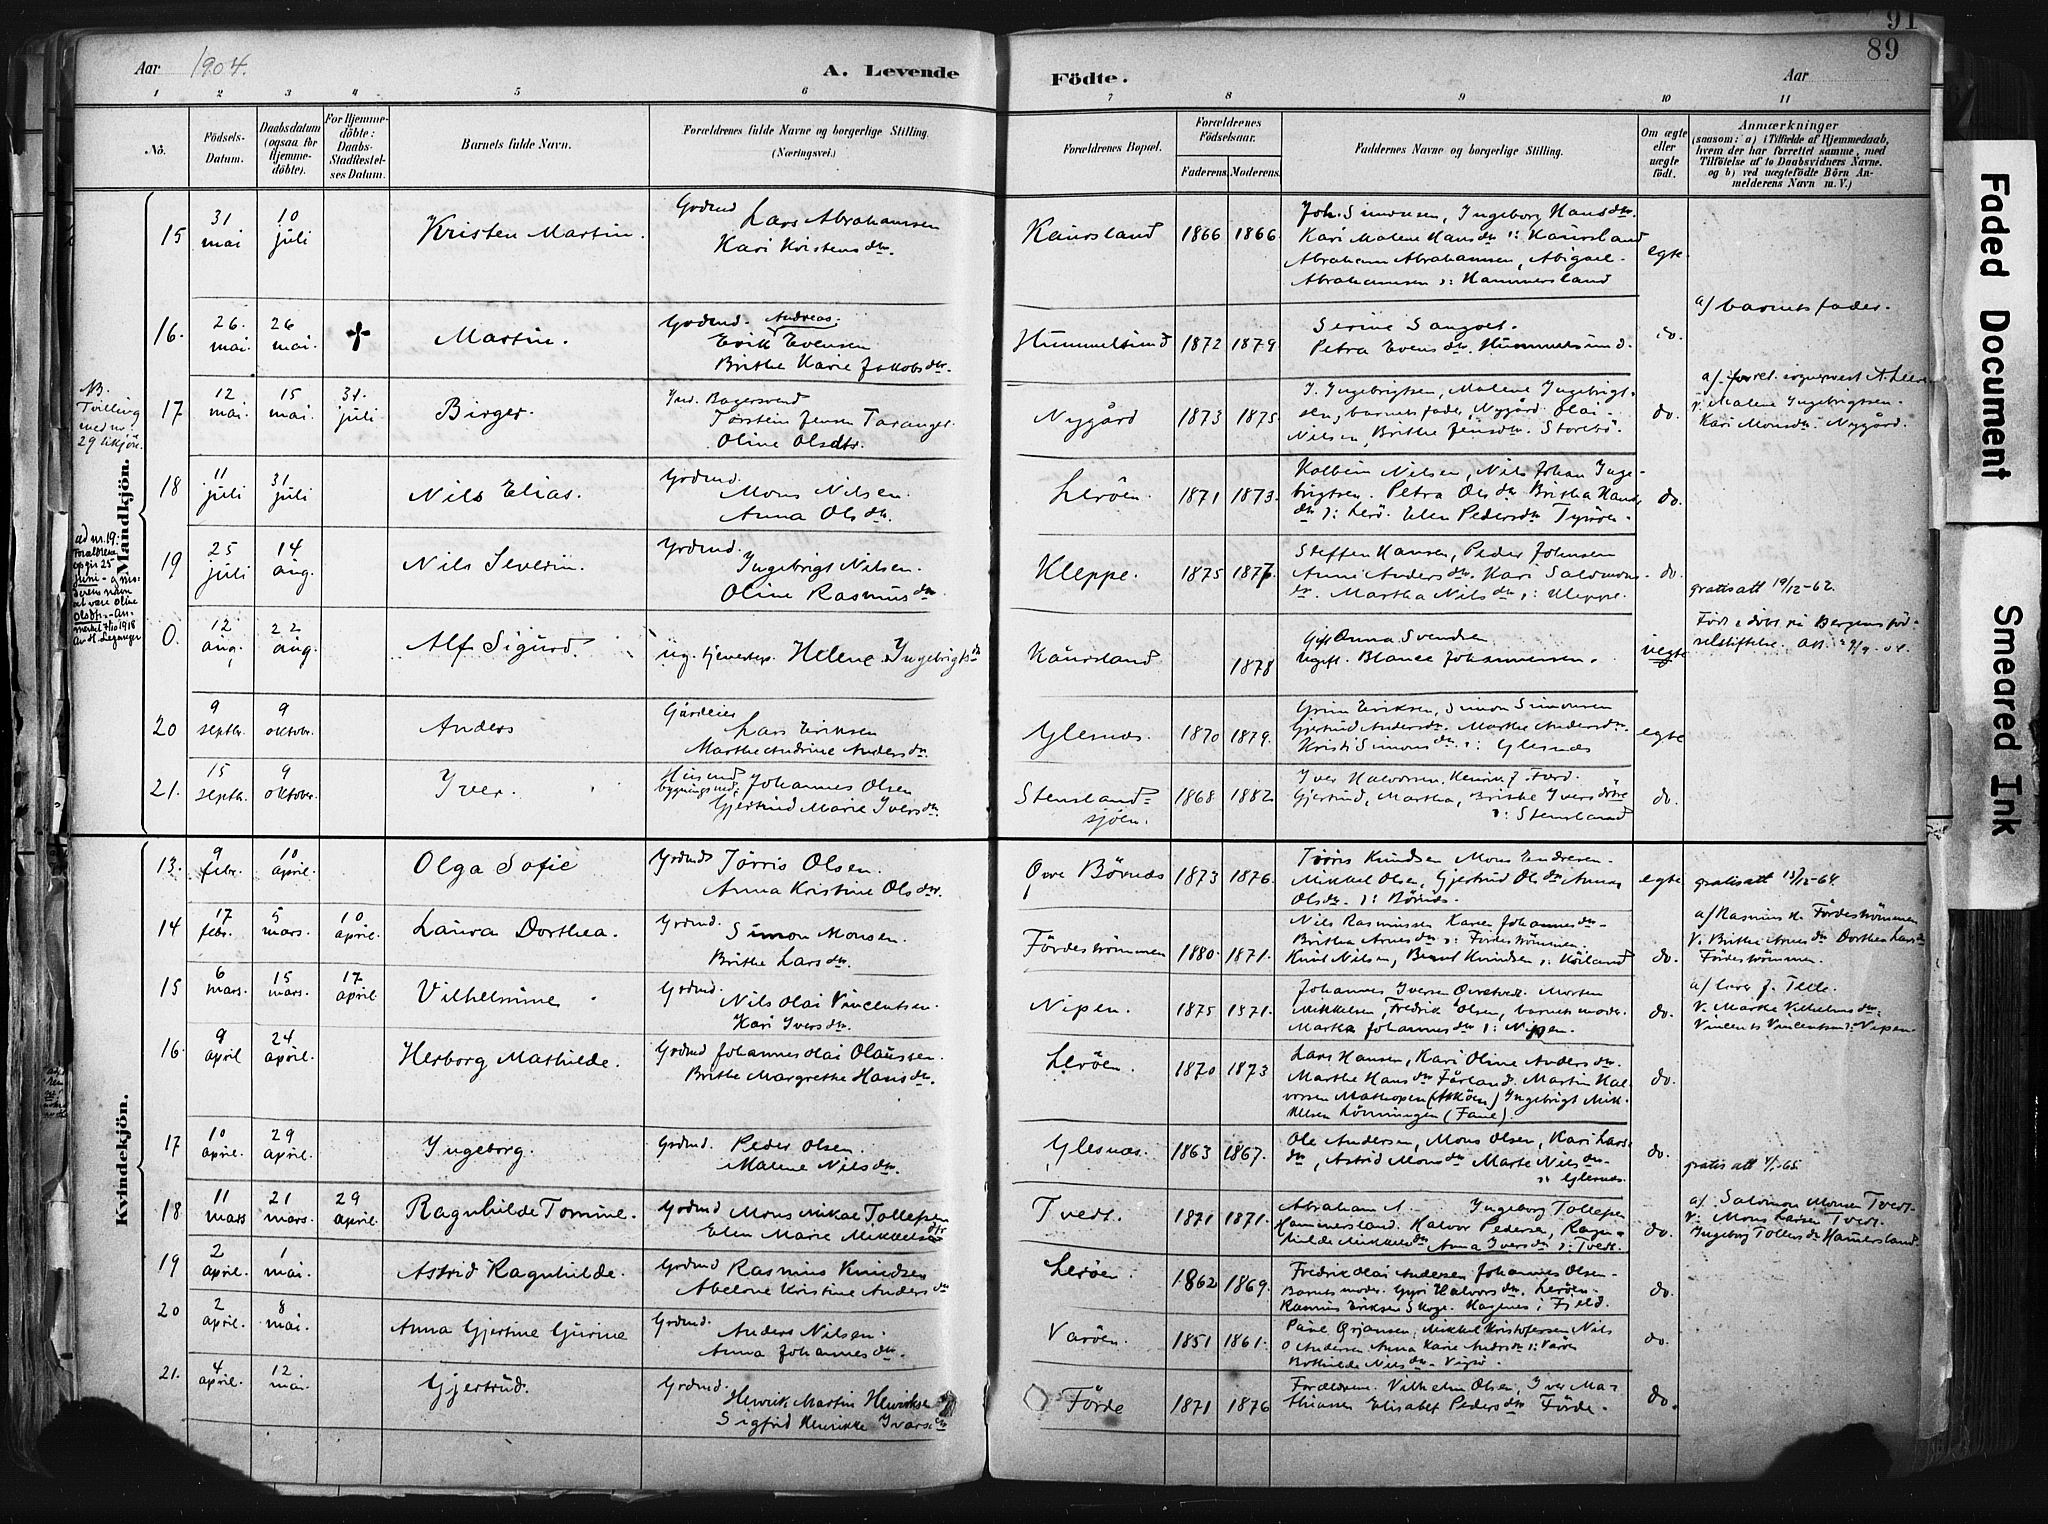 91
89
Aar 1904.
A. Levende
Födte.
Aar
1 2 3 4 5 6 7 8 9 10 11
No.
Födsels-Datum.
Daabsdatum (ogsaa for Hjemme-döbte).
For Hjemme-döbte: Daabs-Stadfæstel-ses Datum.
Barnets fulde Navn.
Forældrenes fulde Navne og borgerlige Stilling. (Næringsvei.)
Forældrenes Bopæl.
Forældrenes Födselsaar.
Faderens. Moderens.
Faddernes Navne og borgerlige Stilling.
Om ægte eller uægte födt.
Anmærkninger
(saasom: a) i Tilfælde af Hjemmedaab, hvem der har forrettet samme, med Tilföielse af to Daabsvidners Navne. og b) ved uægtefödte Börn An-melderens Navn m. V.)
Mandkjön.
15 31 mai 10 juli Kristen Martin. Gdmd Lars Abrahamsen
Kari Kristensdtr.
Kaursland 1866 1866. Joh. Simonsen, Ingeborg Hansdtr.
Kari Malene Hansdtr ): Kaursland
Abraham Abrahamsen, Abigael
Abrahamsen ): Hammersland
egte.
16. 26. mai. 26 mai. ✝ Martin. Gdmd. Andreas.
Erik Evensen
Brithe Karie Jakobsdtr.
Hummelsund 1872 1879 Serine Sangolt.
Petra Evensdtr. Hummelsund.
do. a/ barnets fader.
NB. Tvilling med nr. 29 kvkjön.
17 12 mai. 15 mai. 31. juli Birger. Ind. Bagersvend
Torstein Jensen Taranger.
Oline Olsdtr.
Nygård 1873 1875. I. Ingebrigtsen, Malene Ingebrigt-
sen, barnets fader, Nygård. Olai
Nilsen, Brithe Jensdtr. Storebö.
do.
v. Malene Ingebrigtsen.
Kari Monsdtr. Nygård.
18 11 juli 31. juli Nils Elias. Gdmd.
Mons Nilsen.
Anna Olsdtr.
Leröen. 1871 1873. Kolbein Nilsen, Nils Johan Inge-
brigtsen. Petra Olsdtr Britha Hans
dtr ): Lerö. Elen Pedersdtr Tysöen.
do.
ad nr. 19: Forældrene opgir 25 juni - og mo-derens navn at være Oline Olsdtr. - An-merket 7/10 1918 av H. Leganger
19 25 juli 14 aug. Nils Severin. Grdmd.
Ingebrigt Nilsen.
Oline Rasmusdtr.
Kleppe. 1875 1877. Steffen Hansen, Peder Johnsen
Anne Andersdtr. Kari Salomons
dtr. Martha Nilsdtr ): Kleppe.
do. gratisatt 19/12-62.
0. 12 aug. 22 aug. Alf Sigurd. ug. tjenestep. Helene Ingebrigtsdtr
Kaursland 1878 Gift Anna Svendsen
Ugift. Blanca Johannessen.
uegte Född & döbt på Bergens föd-
selstiftelse. att. 29/9-04.
20 9 septbr. 9 oktobr. Anders Gårdeier
Lars Eriksen
Marthe Andrine Andersdtr.
Glesnæs. 1870 1879. Grim Eriksen, Simon Simonsen
Gjertrud Andersdtr. Marthe Andersdtr.
Kristi Simonsdtr. ): Glesnæs
egte
21. 15 septbr. 9 oktober. Iver. Husmd bygningssnd. Johannes Olsen
Gjertrud Marie Iversdtr.
Stensland-
sjöen. 1868 1882 Iver Halvorsen, Henrik J. Förd.
Gjertrud, Martha, Brithe Iversdötre
): Stensland
do.
Kvindekjön.
13. 9 febr. 10 april. Olga Sofie Grdmds Törris Olsen.
Anna Kristine Olsdtr.
Övre Börnæs 1873 1876. Törris Knudsen Mons Endresen.
Mikkel Olsen, Gjertrud Olsdtr Annas
Olsdtr. ): Börnæs.
egte gratisatt 13/12-64.
14 17 febr. 5 mars. 10 april. Laura Dorthea. Grdmd.
Simon Monsen.
Brithe Larsdtr.
Fördeströmmen 1880. 1871. Nils Rasmussen Karen Johannesdtr.
Britha Arnesdtr ): Fördeströmmen.
Knut Nilsen, Berent Knudsen ): Höiland
do. a/ Rasmus K. Fördeströmmen
V. Brithe Arnesdtr Dorthea Larsdtr
Fördeströmmen.
15 6 mars. 15 mars. 17 april Vilhelmine Grdmd.
Nils Olai Vincentsen.
Kari Iversdtr.
Nipen. 1875 1871. Johannes Iversen Morten
Mikkelsen, Fredrik Olsen, barnets moder.
Martha Johannesdtr ): Nipen.
do.
V. Marthe Vilhelmsdtr.
Vincents Vincentsen ): Nipen.
16. 9 april 24 april. Herborg Mathilde. Grdmd Johannes Olai Olaussen.
Brithe Margrethe Hansdtr.
Leröen. 1870 1873 Lars Hansen, Kari Oline Andersdtr.
Marthe Hansdtr Förland. Martin Hal-
vorsen Mathopen (Asköen) Ingebrigt Mik-
kelsen Lönningen (Fane).
do.
17 10 april. 29 april. Ingeborg. Grdmd. Peder Olsen.
Malene Nilsdtr.
Glesnæs. 1863 1867. Ole Andersen, Mons Olsen, Kari Lars-
dtr, Astrid Monsdtr Marte Nilsdtr.
): Glesnæs.
do. gratis att 4/1-65.
18 11 mars 21 mars. 29 april. Ragnhilde Tomine. Grdmd Mons Mikal Tollefsen
Elen Marie Mikkelsdtr
Tvedt. 1871 1871. Abraham A. Ingeborg Tollefsen
Hammersland. Halvor Pedersen, Ragn-
hilde Mikkelsdtr Anna Iversdtr ): Tvedt.
do. a/. Salomon Monsen Tvedt.
V. Mons Larsen Tvedt.
Ingeborg Tollefsdtr Hamersland.
19 2 april. 1 mai. Astrid Ragnhilde. Grdmd Rasmus Knudsen
Abelone Kristine Andersdtr
Leröen. 1862 1869. Fredrik Olai Andersen Johannes Olsen.
Barnets moder. Guri Halvorsdtr. Leröen.
Rasmus Eriksen Skoge. Hagenes i Fjeld.
do.
20 2 april. 8 mai. Anna Gjertine Gurine Grdmd.
Anders Nilsen.
Anna Johannesdtr.
Varöen. 1851 1861. Paul Örjansen, Mikkel Kristofersen Nils
O Andersen Anna Karie Andrsdtr ): Varöen
Bothilde Nilsdtr. Vigsö.
do.
21. 4 april. 12 mai. Gjertrud. Grdmd.
Henrik Martin Henriksen
Sigfrid Henrikke Ivarsdtr
Förde 1871 1876 Forældrene. Vilhelm Olsen, Iver Ma-
thiasen Elisabet Pedersdtr Förde.
do.
Faded Document
Smeared Ink